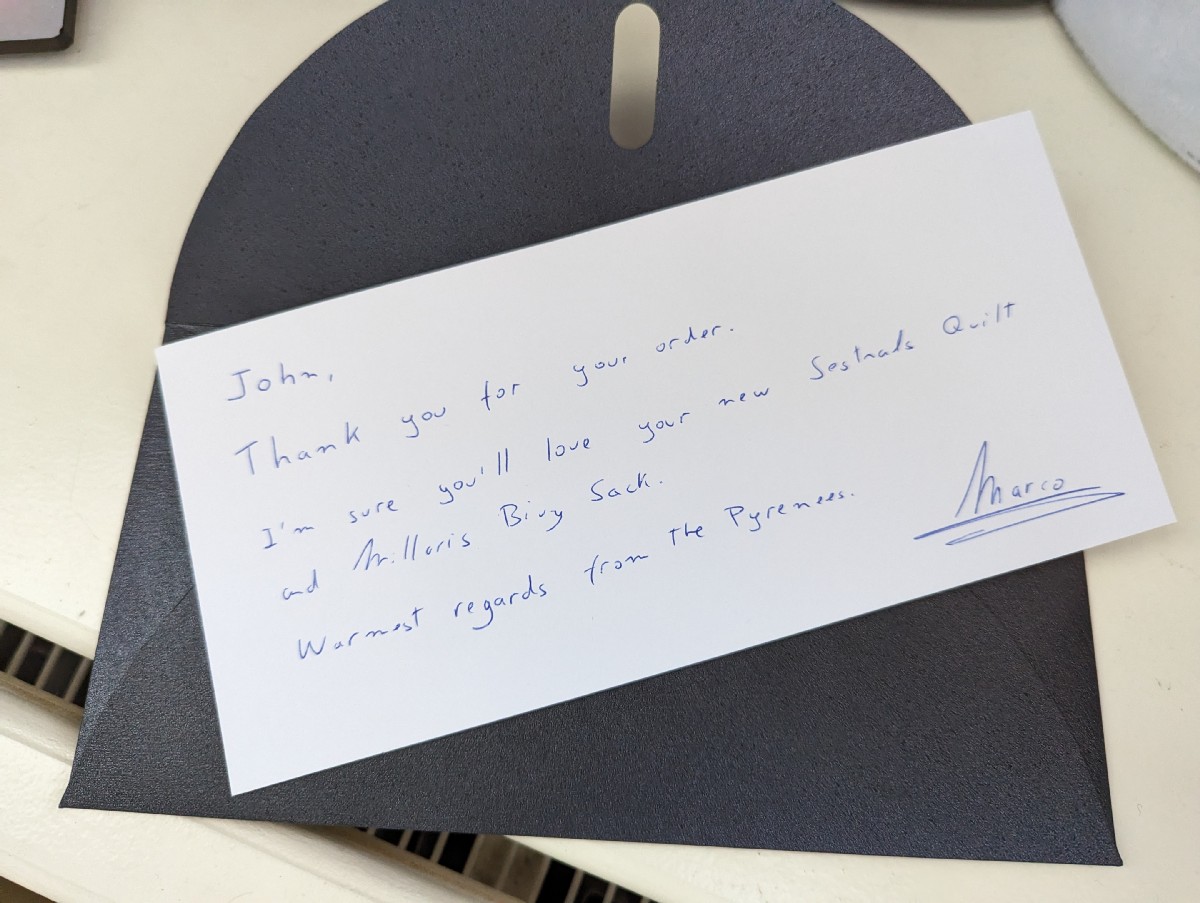 John,
Thank you for your order.
I'm sure you'll love your new Sestrals Quilt
and Millaris Bivy Sack.
Warmest regards from the Pyrenees.
Marco